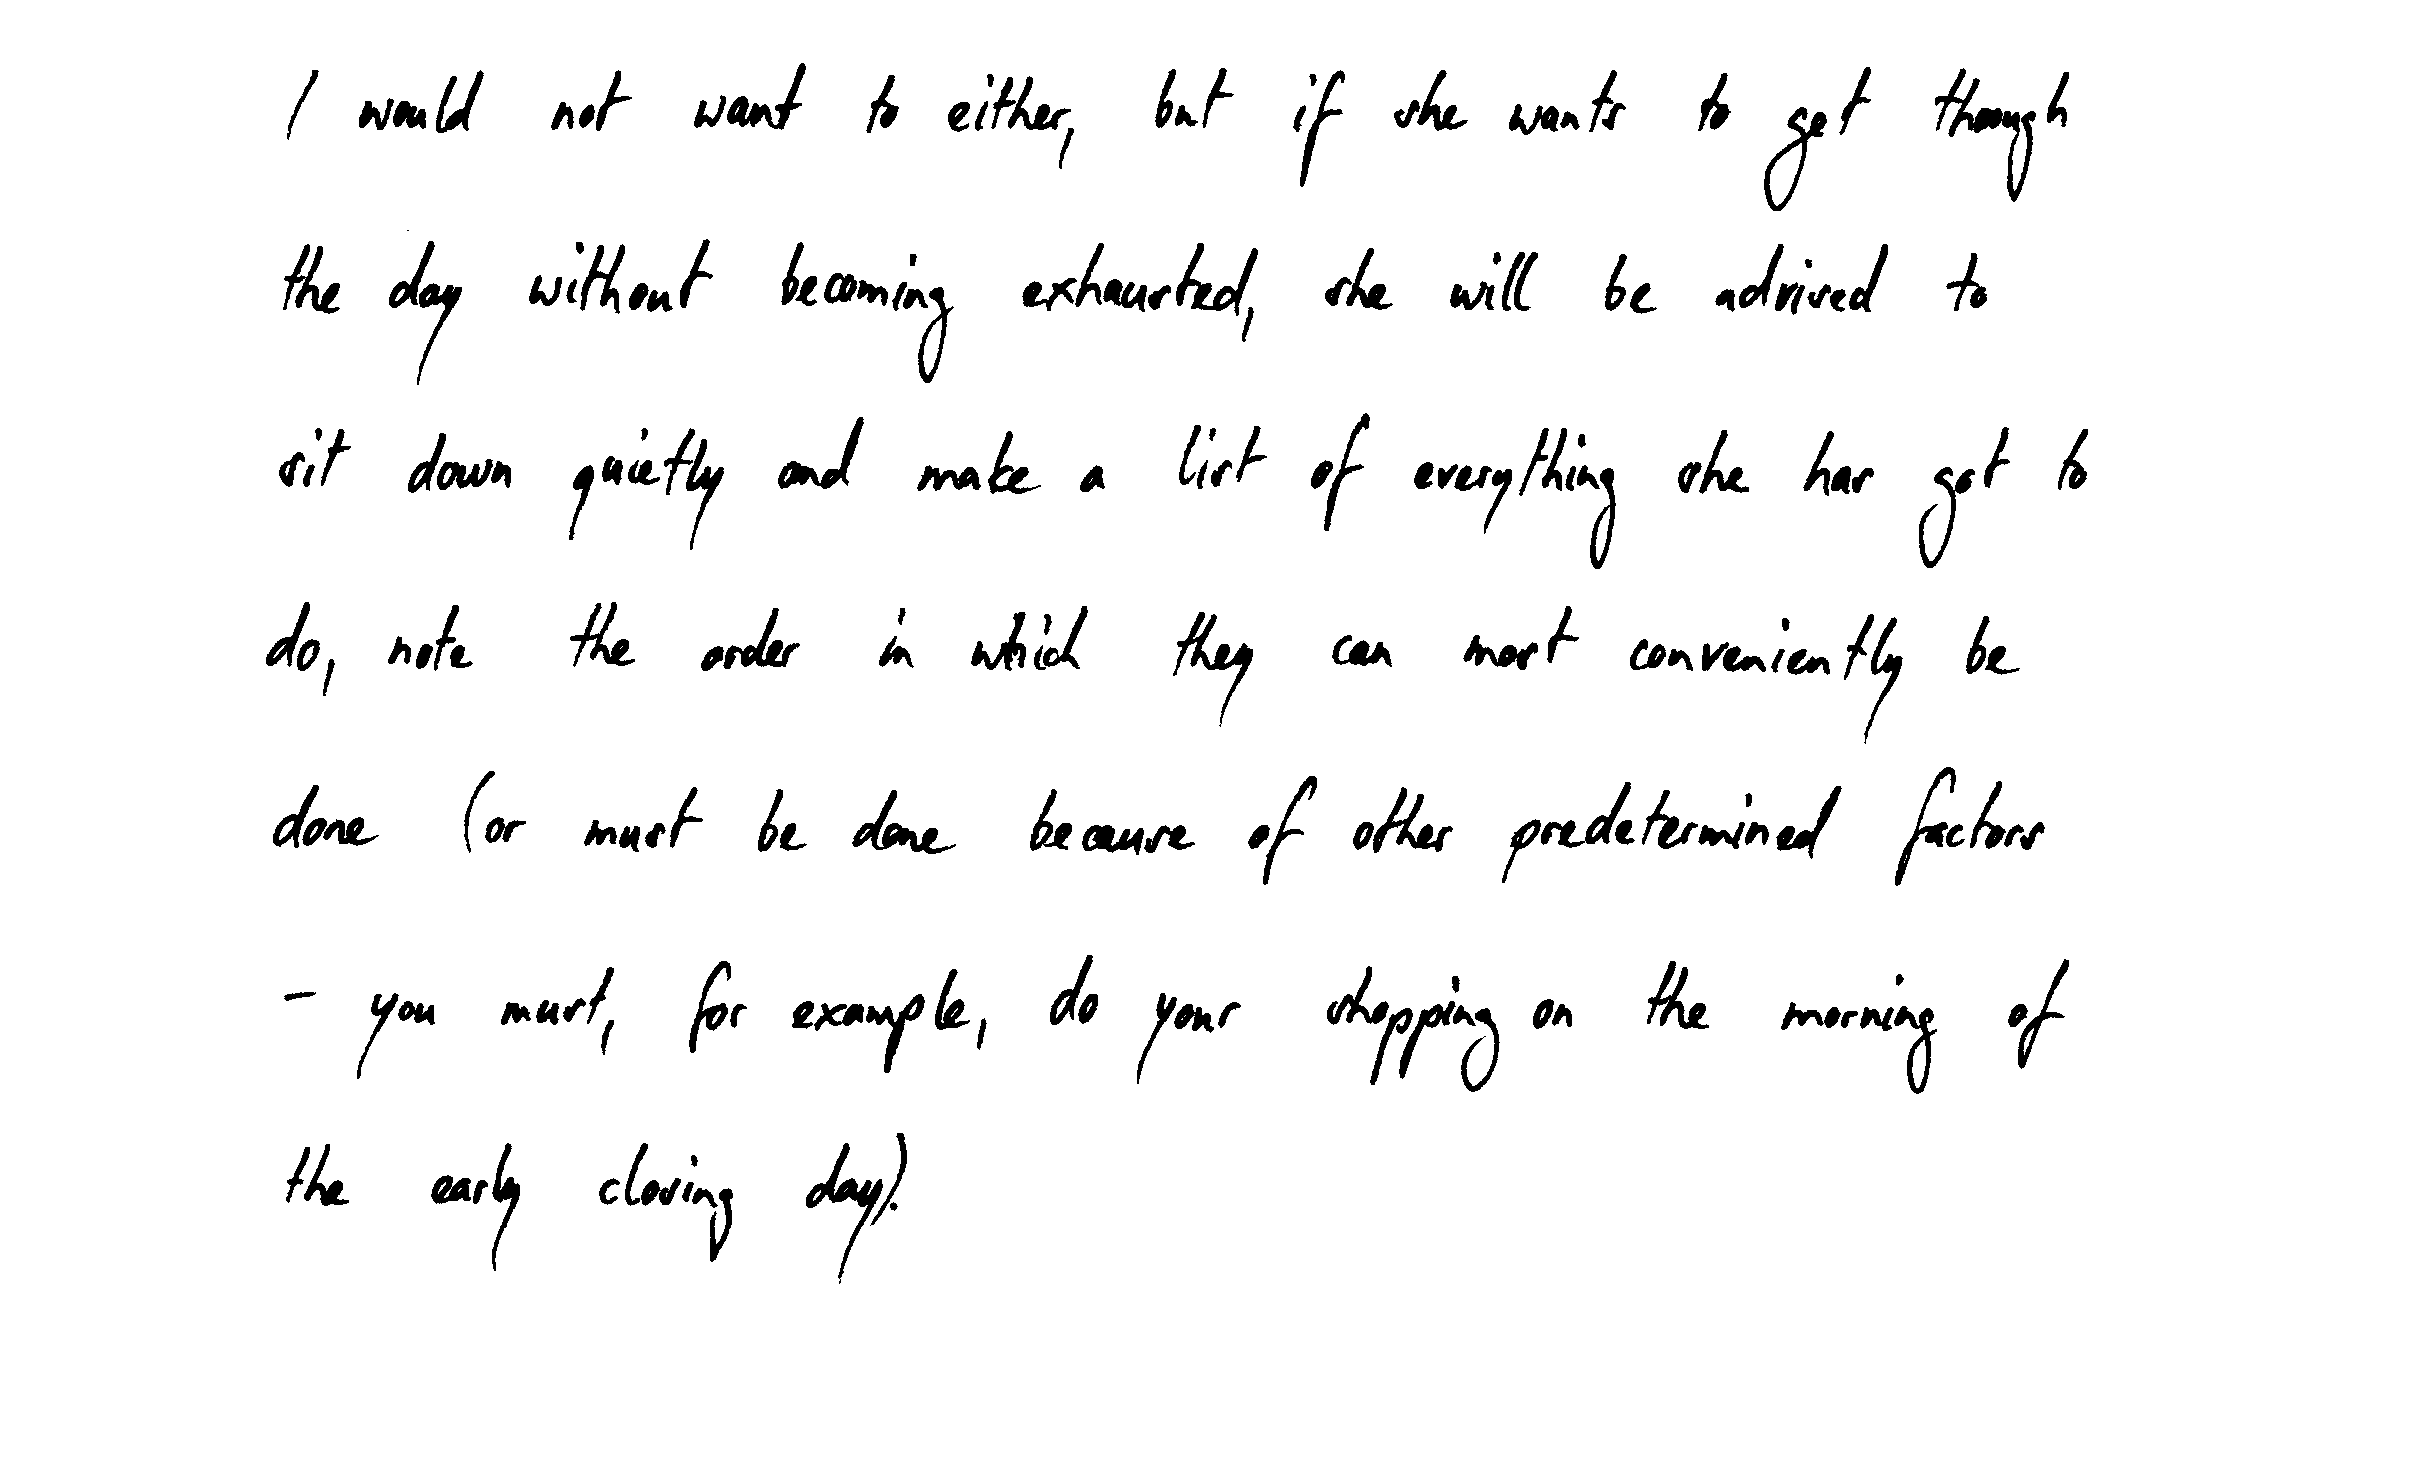 I would not want to either, but if she wants to get though
the day without becoming exhausted, she will be advised to
sit down quietly and make a list of everything she has got to
do, note the order in which they can most conveniently be
done (or must be done because of other predetermined factors
- you must, for example, do your shopping on the morning of
the early closing day).